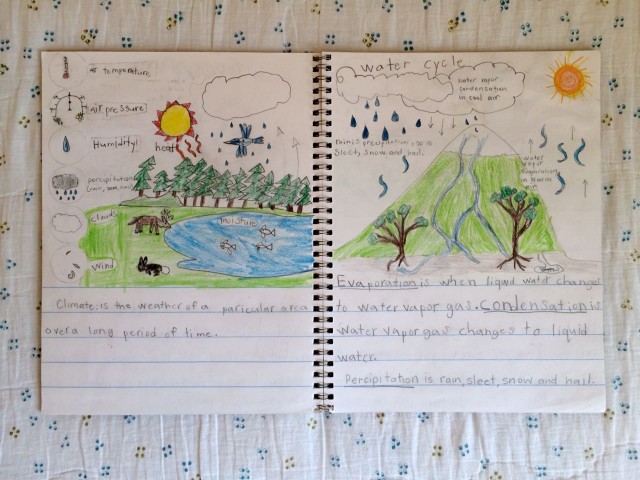 temperature
Air pressure!
Humidity!
heat
percipitation
Clouds
moisture
Wind
Climate: is the weather of a particular area
over a long period of time.
water cycle
water vapor
condensation
in cool air
sleet, snow and hail.
water
vapor
Evaporation
in warm
Evaporation is when liquid water changes
to water vapor gas. Condensation is
water vapor gas changes to liquid
water.
Percipitation is rain, sleet, snow and hail.